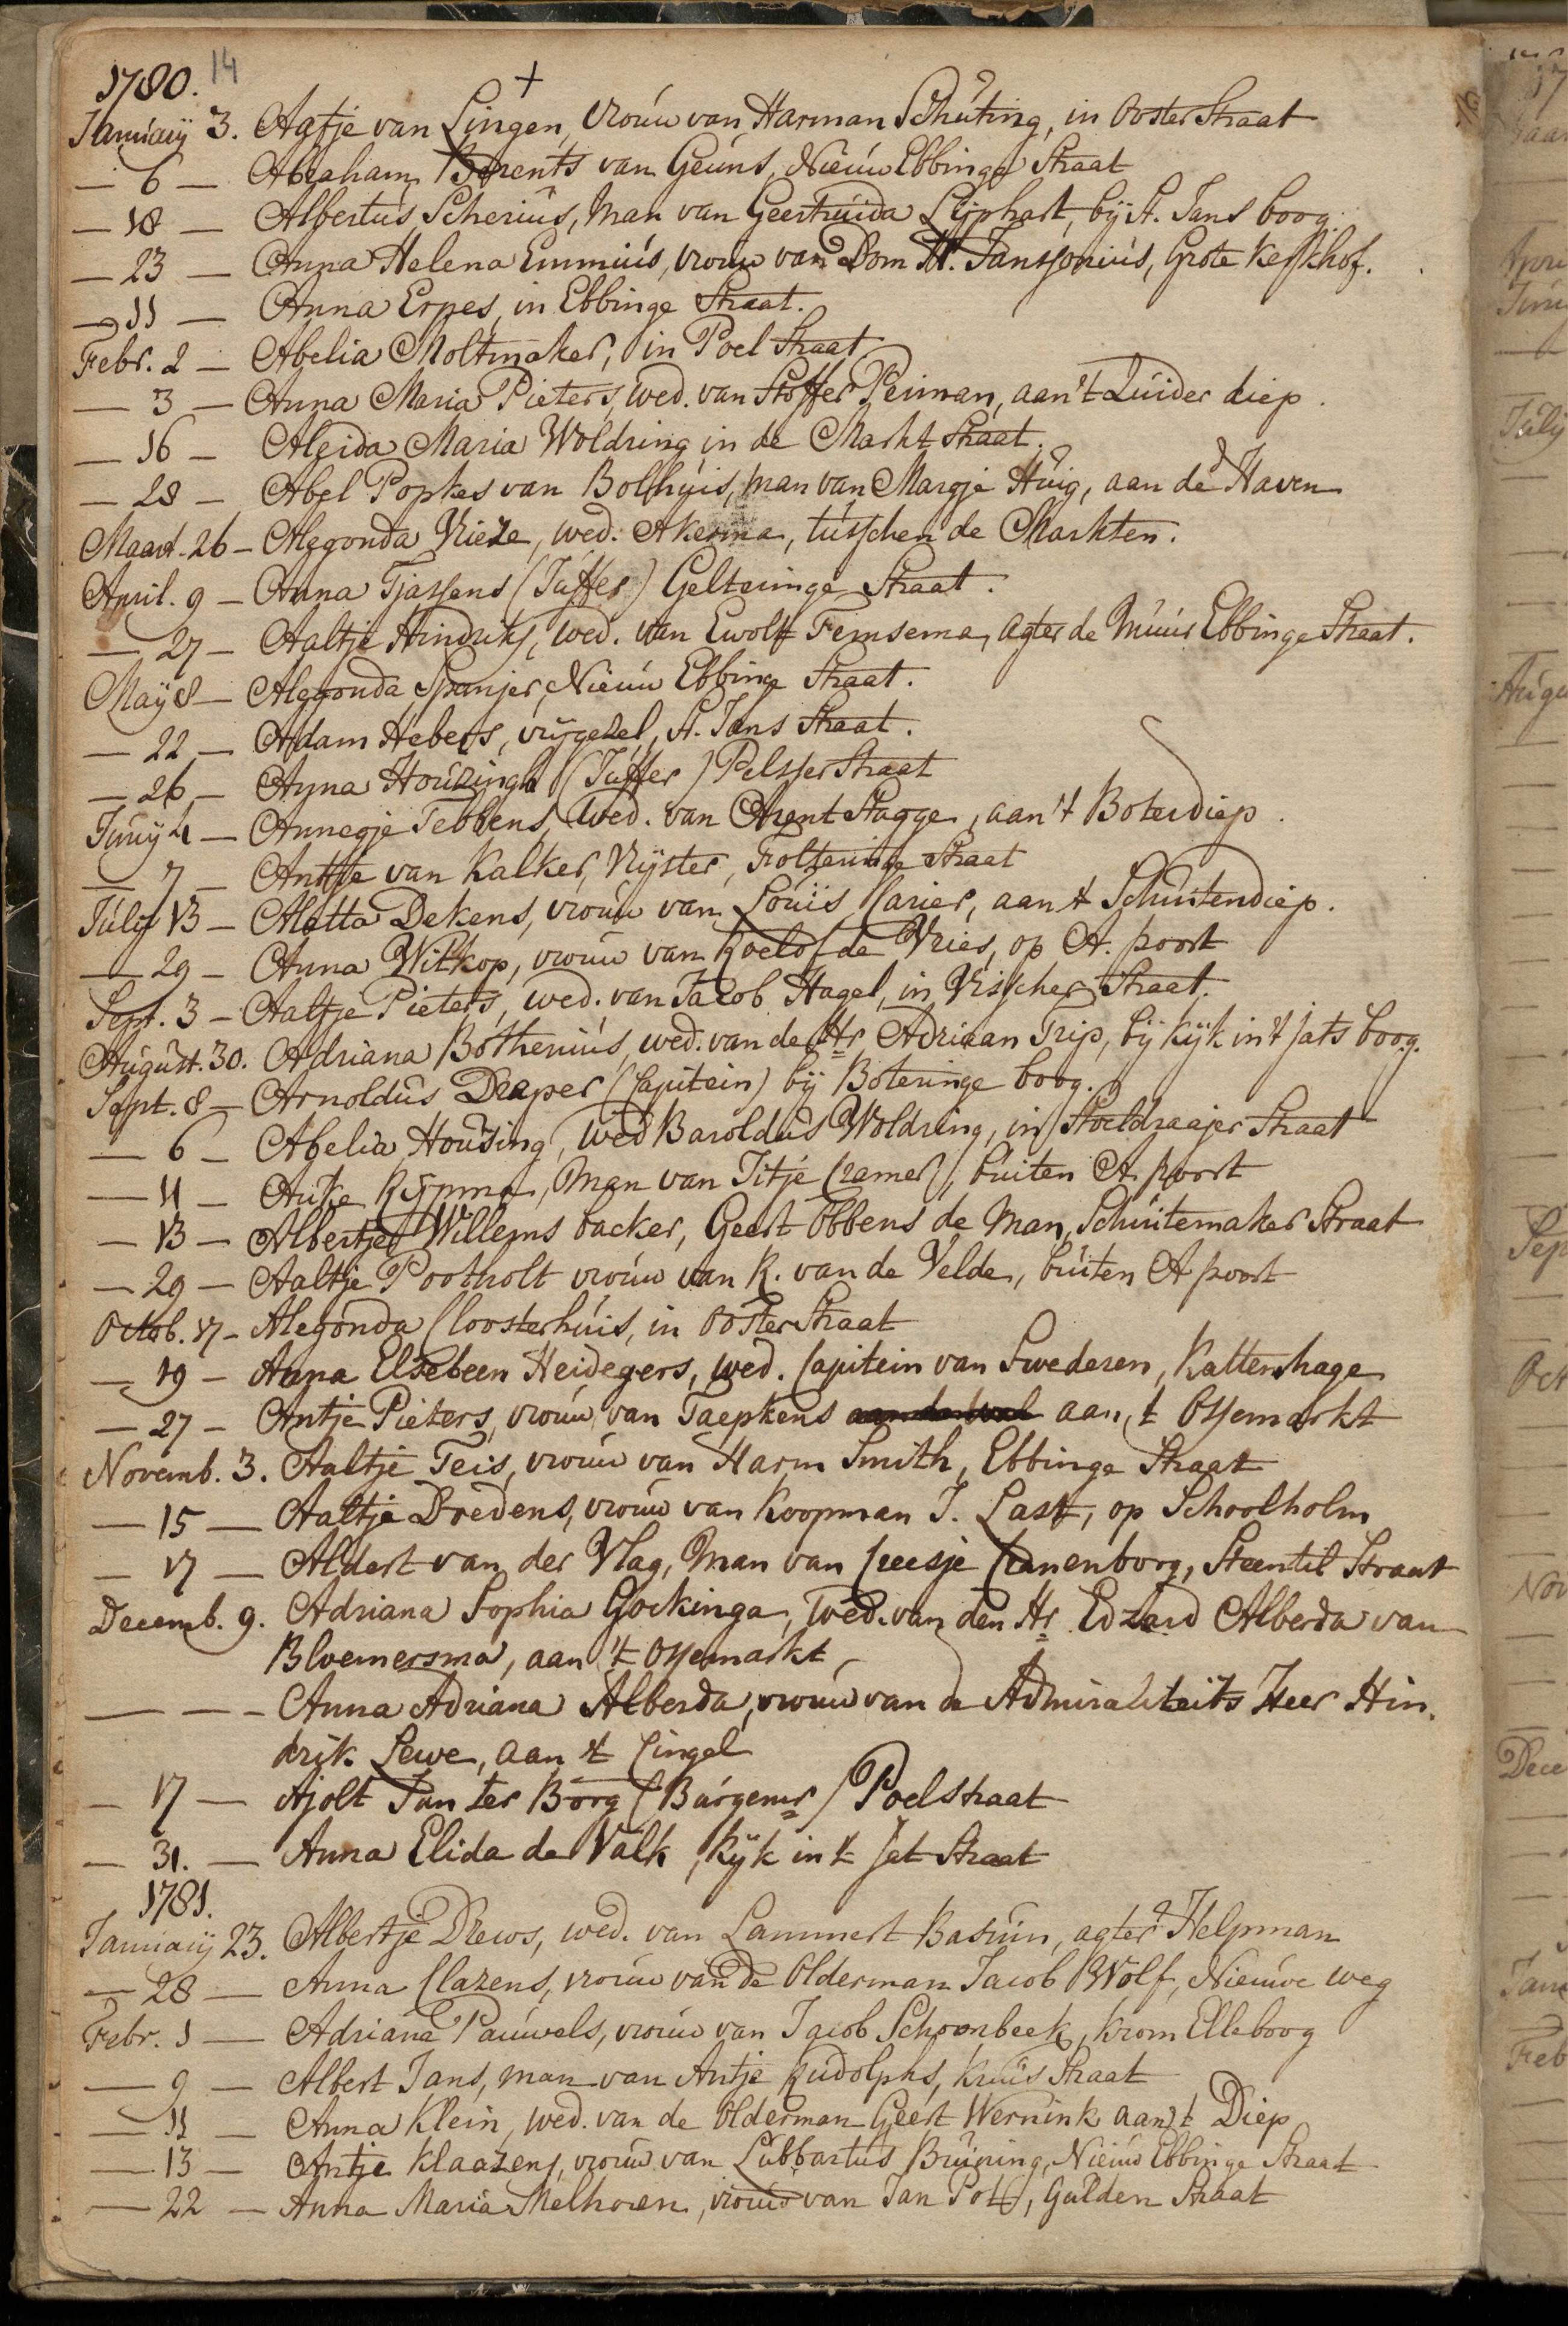 1780. 14 +
January 3. Aafje van Lingen, vrouw van Harman Schuting, in Ooster Straat
— 6 — Abraham Barents van Geuns, Nieuw Ebbinge Straat
— 18 — Albertus Scherius, man van Geertruida Lijphart, bij St. Jans boog.
— 23 — Anna Helena Emmius, vrouw van Dom H. Janssonius, Grote Kerkhof.
— 11 — Anna Erpes, in Ebbinge Straat.
Febr. 2 — Abelia Moltmaker, in Poel Straat
— 3 — Anna Maria Pieters, wed. van Stoffer Peiman, aan 't Zuider diep.
— 16 — Algida Maria Woldring in de Markt Straat.
— 28 — Abel Popkes van Bolhuis, man van Margje Huig, aan de Haven
Maart. 26 — Alegonda Vrieze, wed. Akerma, tusschen de Markten.
April. 9 — Anna Tjassens (Juffer) Gelteringe Straat.
— 27 — Aaltje Hindriks, wed. van Ewolt Feinsema, agter de Muur Ebbinge Straat.
May 8 — Aleggonda Spanjer, Nieuw Ebbinge Straat.
— 22 — Adam Hebels, vrijgezel, St. Jans Straat.
— 26 — Anna Houzingh (Juffer) Pelsser Straat
Juny 4 — Annegje Tebbens, Wed. van Arent Stagge, aan 't Boterdiep.
— 7 — Antje van Kalker, Vrijster, Folteringe Straat
July 13 — Aletta Dekens, vrouw van Louis Carier, aan 't Schuitendiep.
— 29 — Anna Witkop, vrouw van Roelof de Vries, op A. poort
Sept. 3 — Aaltje Pieters, wed. van Jacob Hagel, in Visscher Straat.
August. 30. Adriana Bothenius, wed. van de Hr Adriaan Trip, bij Kijk in 't Jats boog.
Sept. 8 — Arnoldus Draper (Capitein) bij Boteringe boog.
— 6 — Abelia Housing, Wed Baroldus Woldring, in Stoeldraajer Straat
— 11 — Auke Rijpma, Man van Titje Cramer, buiten A poort
— 13 — Albertje Willems backer, Geert Obbens de Man, Schuitemaker Straat
— 29 — Aaltje Pootholt vrouw van R. van de Velde, buiten A poort
Octob. 17 — Alegonda Cloosterhuis, in Ooster Straat
— 19 — Anna Elsebeen Heidegers, wed. Capitein van Swederen, Kattenhage
— 27 — Antje Pieters, vrouw van Taepkens aan 't Ossemarkt
Novemb. 3. Aaltje Teis, vrouw van Harm Smith, Ebbinge Straat
— 15 — Aaltje Dredens, vrouw van Koopman J. Last, op Schoolholm
— 17 — Aldert van der Vlag, Man van Ceesje Cranenborg, Steentil Straat
Decemb. 9. Adriana Sophia Gockinga, Wed. van den Hr Edzard Alberda van
Bloemersma, aan 't Ossemarkt
— — — Anna Adriana Alberda, vrouw van de Admiraliteits Heer Hin,
drik Lewe, aan 't Cingel
— 17 — Ajolt Jan ter Borg (Burgemr) Poelstraat
— 31. — Anna Elida de Valk, Kijk in 't Jat Straat
1781.
January 23. Albertje Drews, wed. van Lammert Basuin, agter Helpman
— 28 — Anna Clazens, vrouw van de Olderman Jacob Wolf, Nieuwe weg
Febr. 1 — Adriana Pauwels, vrouw van Jacob Schoonbeek, Krom Elleboog
— 9 — Albert Jans, man van Antje Rudolphs, Kruis Straat
— 11 — Anna Klein, wed. van de Olderman Geert Wernink aan 't Diep
— 13 — Antje Klaazens, vrouw van Lubbartus Bruining, Nieuw Ebbinge Straat
— 22 — Anna Maria Melhoren, vrouw van Jan Pott, Gulden Straat